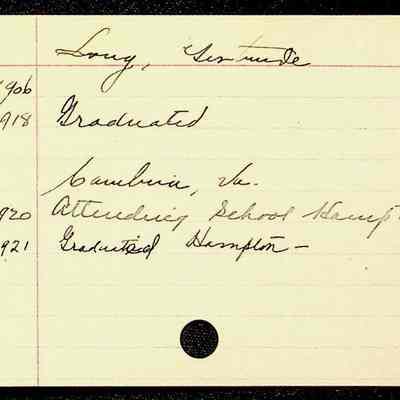 Long, Gertrude
1906
1918 Graduated
Cambria, Va.
1920 Attending School Hamp
1921 Graduated Hampton -